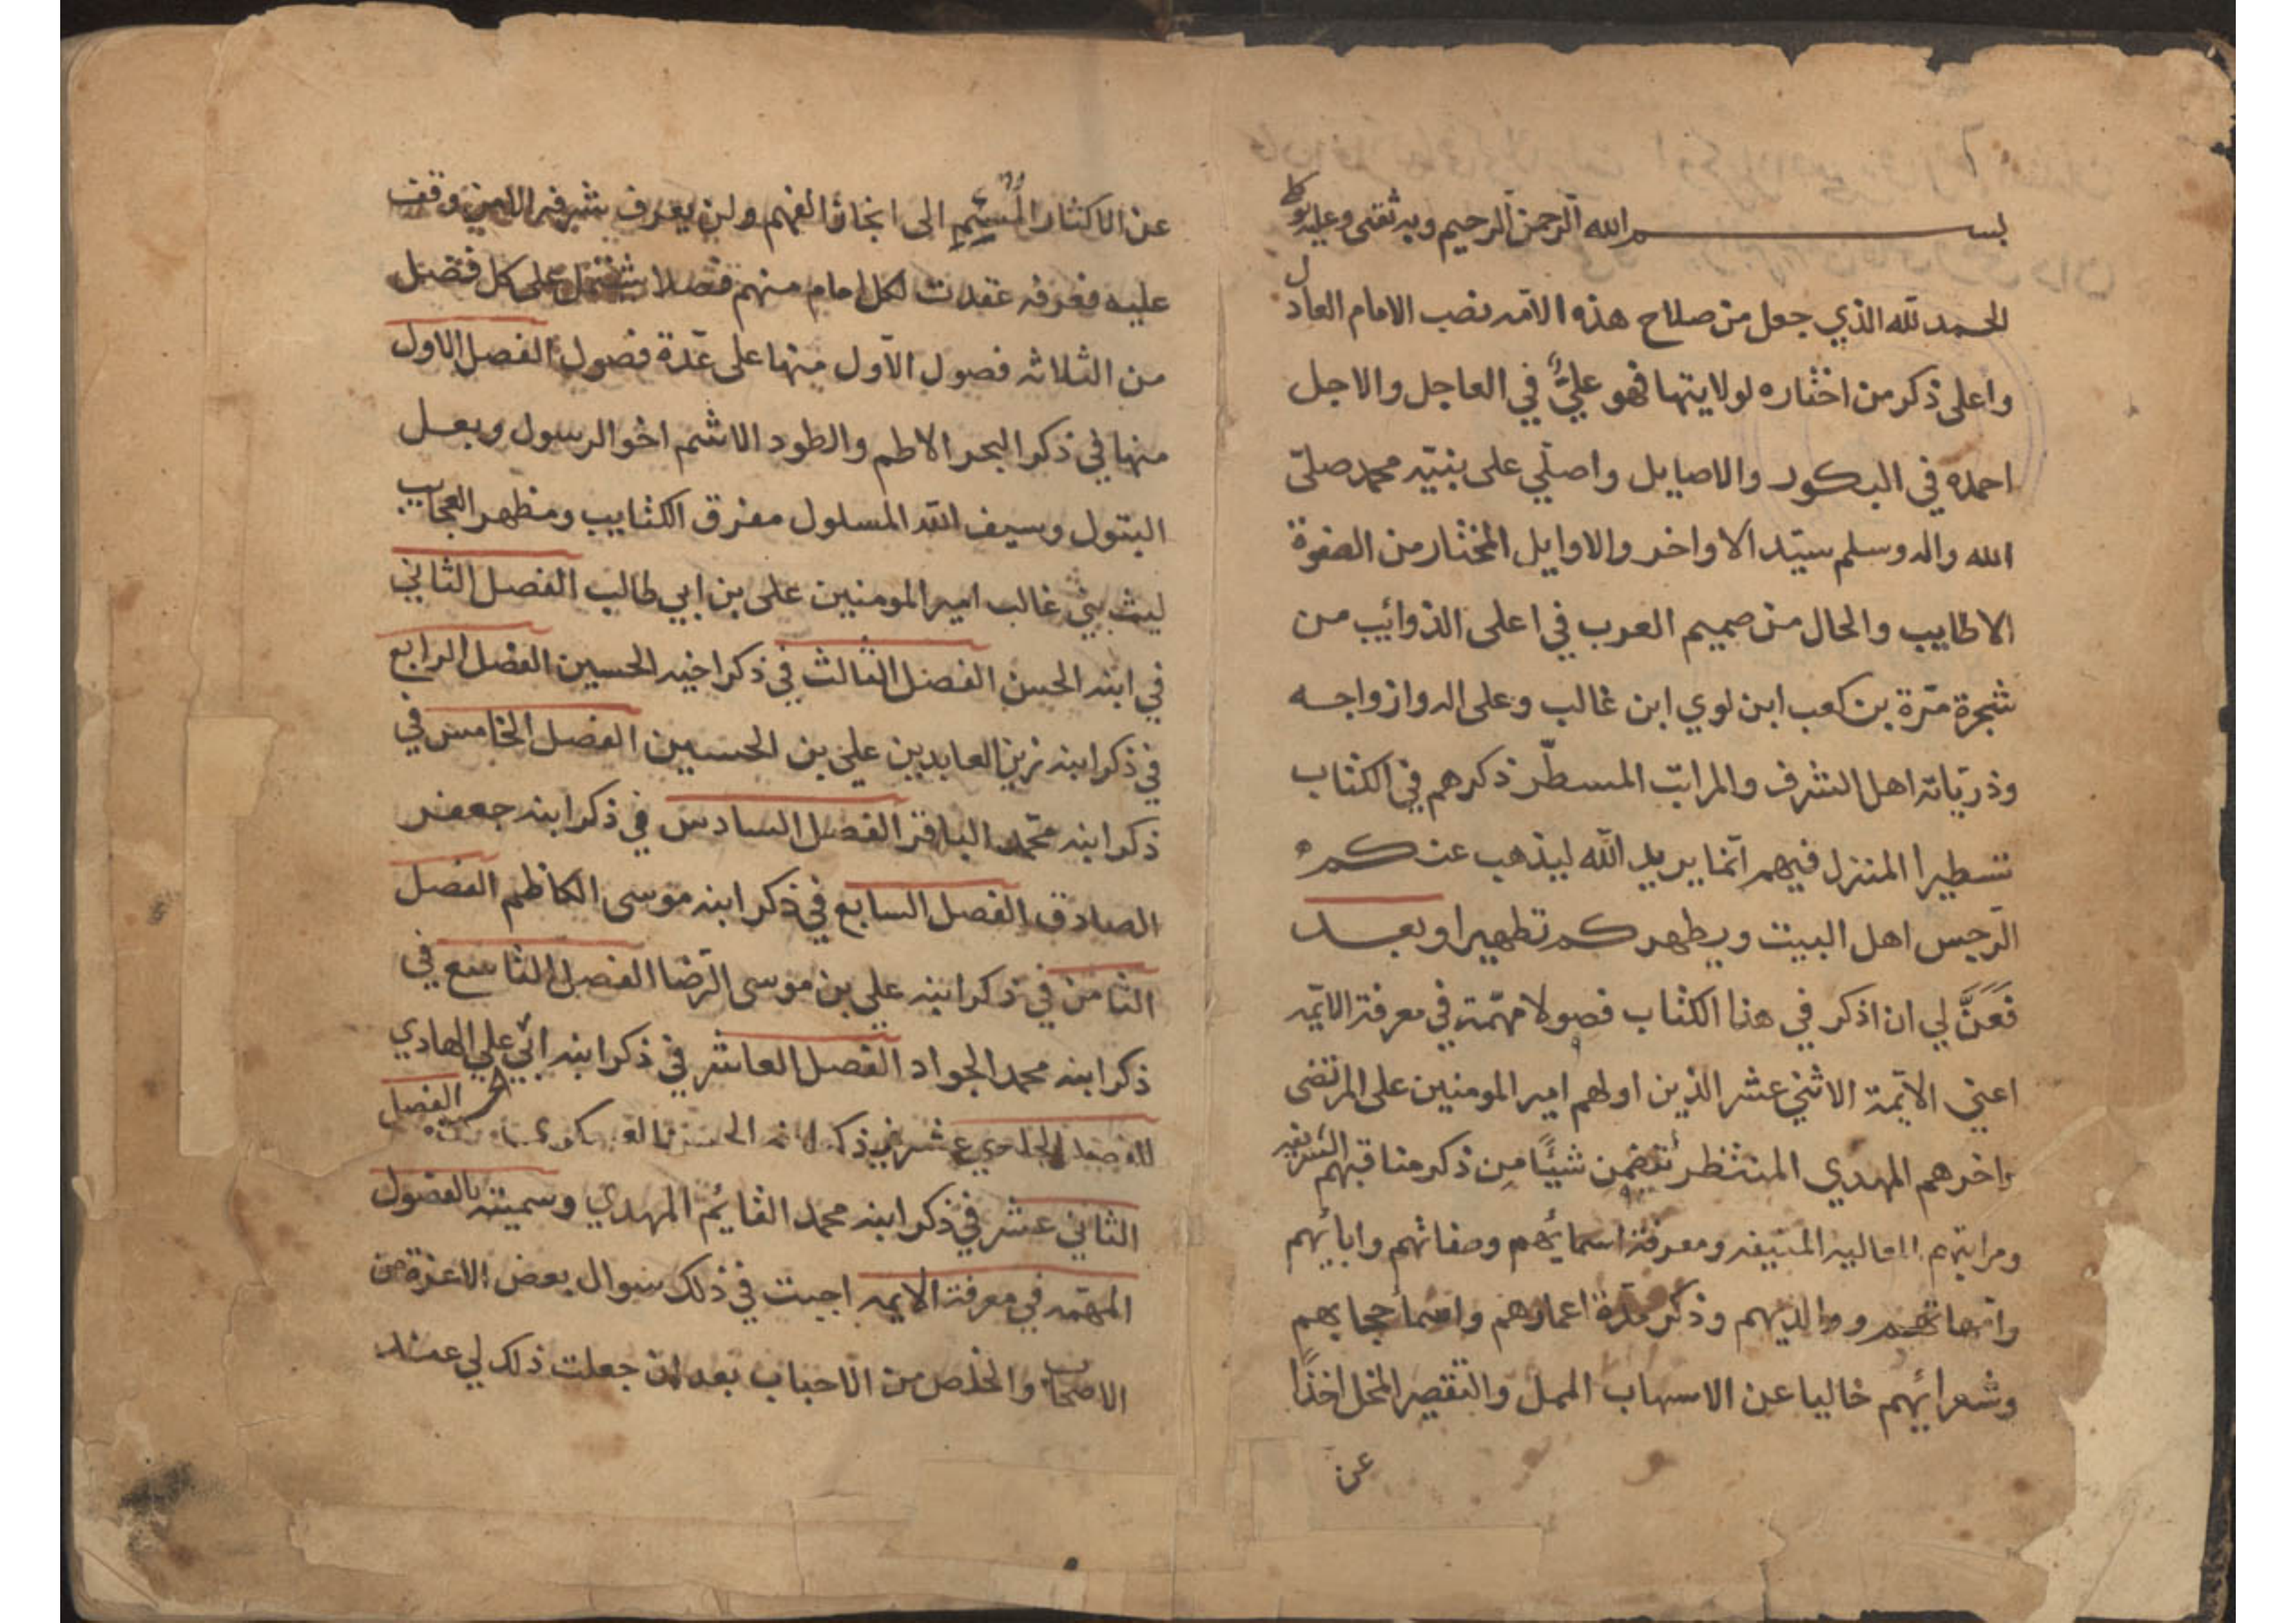 بسم الله الرحمن الرحيم وبه ثقتى وعليه توكلى
الحمد لله الذي جعل من صلاح هذه الامه نصب الامام العادل
واعلى ذكر من اختاره لولايتها فهو عليٌّ في العاجل والاجل
احمده في البكور والاصايل واصلّي على نبيّه محمد صلّى
الله واله وسلم سيّد الاواخر والاوايل المختار من الصفوة
الاطايب والحال من صميم العرب في اعلى الذوائب من
شجرة مرّة بن كعب ابن لوي ابن غالب وعلى اله وازواجه
وذريّاته اهل الشرف والمراتب المسطّر ذكرهم في الكتاب
تسطيرا المنزل فيهم انّما يريد الله ليذهب عنكم
الرّجس اهل البيت ويطهركم تطهيرا وبعد
فَعَنَّ لي ان اذكر في هذا الكتاب فصولا مهمّة في معرفة الايمّه
اعني الايمّة الاثني عشر الذين اولهم امير المومنين على المرتضى
واخرهم المهدي المنتظر تتضمن شيئًا من ذكر مناقبهم الشريفه
ومراتبهم العاليه المنيفه ومعرفة اسمايهم وصفاتهم وابائهم
وامّهاتهم ووالديهم وذكر مدّة اعمارهم واسما حجابهم
وشعرائهم خاليا عن الاسهاب الممل والتقصير المخل اخذًا
عن
عن الاكثار المُسْئِمِ الى ايجاز الفهم ولن يعرف شرفه الا من وقف
عليه فعرفه عقدت لكل امام منهم فصلا يشتمل على كل فصل
من الثلاثه فصول الاول منها على عدّة فصول الفصل الاول
منها في ذكر البحر الاطم والطود الاشم اخو الرسول وبعل
البتول وسيف الله المسلول مفرق الكتايب ومظهر العجايب
ليث بني غالب امير المومنين على بن ابي طالب الفصل الثاني
في ابنه الحسن الفصل الثالث في ذكر اخيه الحسين الفصل الرابع
في ذكر ابنه زين العابدين علي بن الحسين الفصل الخامس في
ذكر ابنه محمّد الباقر الفصل السادس في ذكر ابنه جعفر
الصادق الفصل السابع في ذكر ابنه موسى الكاظم الفصل
الثامن في ذكر ابنه علي بن موسى الرّضا الفصل التاسع في
ذكر ابنه محمد الجواد الفصل العاشر في ذكر ابنه ابي علي الهادي
الفصل الحادي عشر في ذكر ابنه الحسن العسكري الفصل
الثاني عشر في ذكر ابنه محمد القائم المهدي وسميته بالفصول
المهمّه في معرفة الايمه اجبت في ذلك سوال بعض الاعزة من
الاصحاب والخلص من الاحباب بعد ان جعلت ذلك لي عند